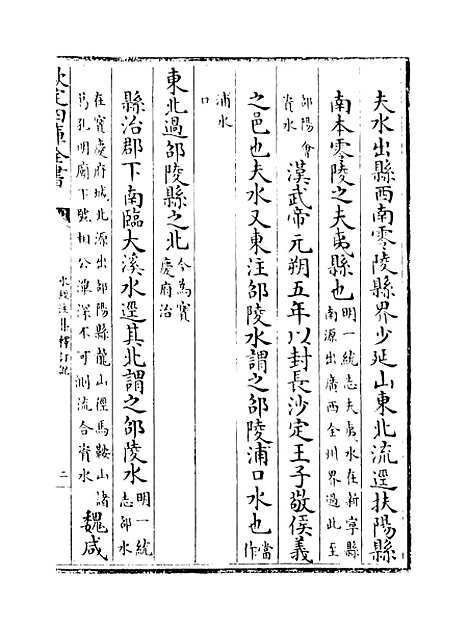 夫水出縣西南零陵縣界少延山東北流逕扶陽縣
南本零陵之夫夷縣也明一統志夫夷水在新寧縣
南源出廣西全州界過此至
邵陽會
資水漢武帝元朔五年以封長沙定王子敬侯義
之邑也夫水又東注邵陵水謂之邵陵浦口水也當
作
浦水
口
東北過邵陵縣之北今為寳
慶府治
縣治郡下南臨大溪水逕其北謂之邵陵水明一統
志邵水
在寳慶府城北源出邵陽縣龍山徑馬鞍山諸
葛孔明廟下號相公潭深不可測流合資水魏咸
欽定四庫全書
水經注集釋訂訛
二